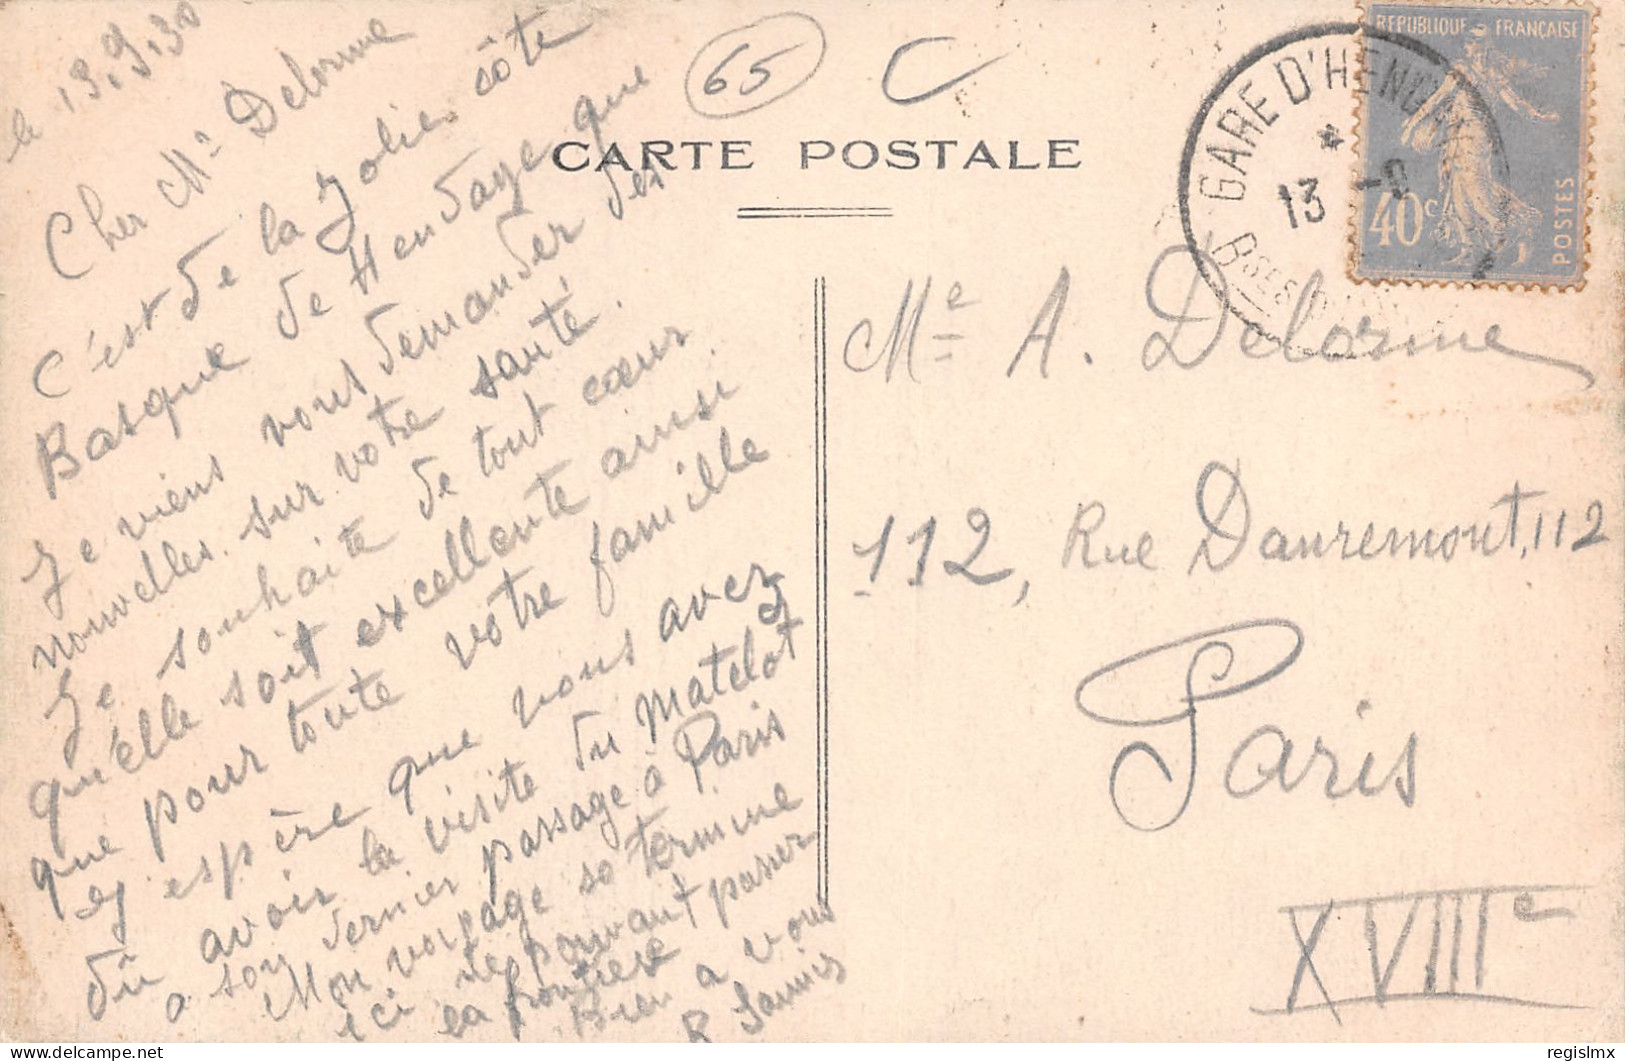 le 13.9.30
Cher Mr Delorme
C'est de la Jolie côte
Basque de Hendaye que
Je viens vous demander des
nouvelles sur votre santé.
Je souhaite de tout cœur
qu'elle soit excellente ainsi
que pour toute votre famille
espère que vous avez
dû avoir la visite du Matelot
a son dernier passage à Paris
Mon voyage se termine
ici ne pouvant passer
la frontière
Bien a vous
65
CARTE POSTALE
RÉPUBLIQUE FRANÇAISE
40c
POSTES
GARE D'HENDAYE
13 -9
BSES
Me A. Delorme
112, Rue Danremont, 112
Paris
XVIIIe
regislmx
delcampe.net